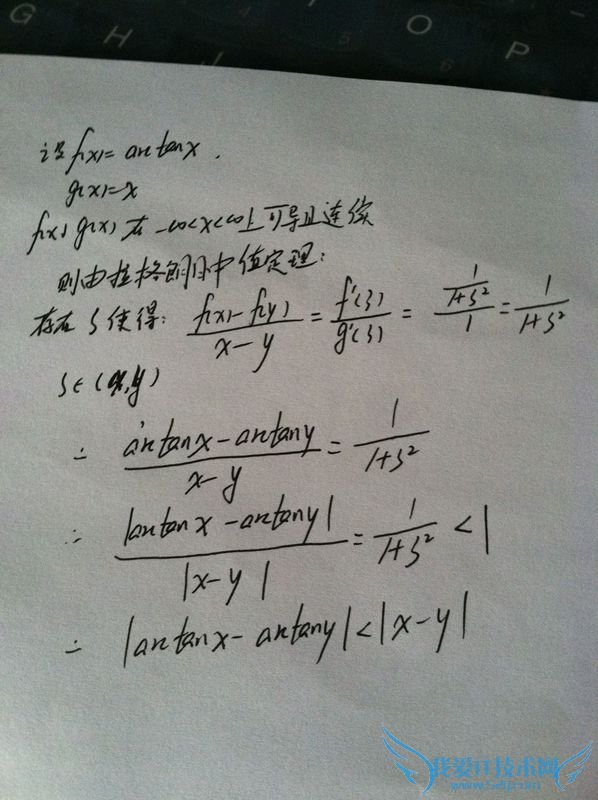 G H I O P
设 f(x)=arctanx.
g(x)=x
f(x) g(x) 在 -∞<x<∞上可导且连续
则由拉格朗日中值定理:
存在 ξ 使得: \frac{f(x)-f(y)}{x-y} = \frac{f'(ξ)}{g'(ξ)} = \frac{\frac{1}{1+ξ²}}{1} = \frac{1}{1+ξ²}
ξ∈(x,y)
∴ \frac{arctanx-arctany}{x-y} = \frac{1}{1+ξ²}
∴ \frac{|arctanx-arctany|}{|x-y|} = \frac{1}{1+ξ²} <1
∴ |arctanx-arctany|<|x-y|
我爱IT技术网